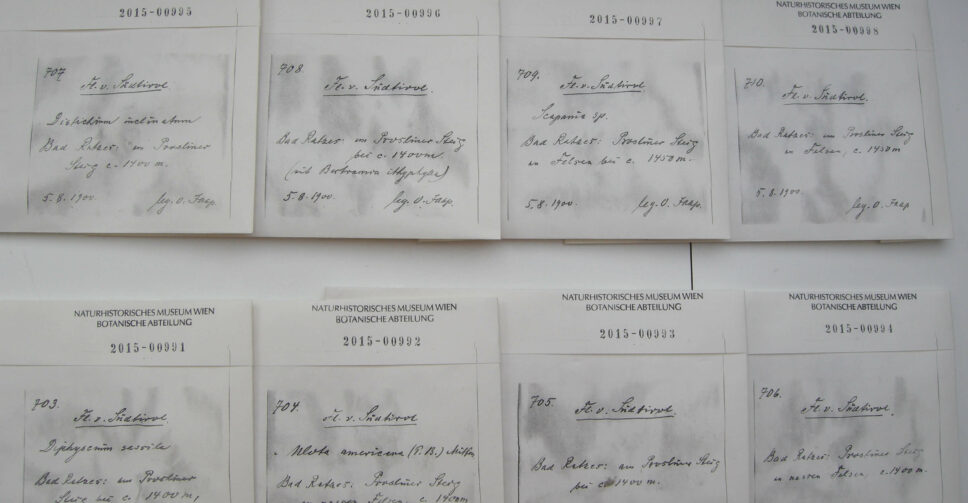 2015-00995
707
Fl. v. Südtirol.
Distichium inclinatum
Bad Ratzes: am Proosliner
Steig c. 1400 m.
5.8.1900. leg. O. Jaap.
2015-00996
708
Fl. v. Südtirol.
Bad Ratzes: am Proosliner Steig
bei c. 1400m.
(mit Bartramia ithyphylla)
5.8.1900. leg. O. Jaap.
2015-00997
709.
Fl. v. Südtirol.
Scapania sp.
Bad Ratzes: Proosliner Steig
an Felsen bei c. 1450 m.
5.8.1900. leg. O. Jaap.
NATURHISTORISCHES MUSEUM WIEN
BOTANISCHE ABTEILUNG
2015-00998
710.
Fl. v. Südtirol.
Bad Ratzes: am Proosliner Steig
an Felsen, c. 1450 m
5.8.1900. leg. O. Jaap.
NATURHISTORISCHES MUSEUM WIEN
BOTANISCHE ABTEILUNG
2015-00991
703.
Fl. v. Südtirol.
Diphyscium sessile
Bad Ratzes: am Proosliner
Steig bei c. 1400 m,
NATURHISTORISCHES MUSEUM WIEN
BOTANISCHE ABTEILUNG
2015-00992
704.
Fl. v. Südtirol
Ulota americana (P.B.) Mitten
Bad Ratzes: Proosliner Steig
an nassen Felsen c. 1400m
NATURHISTORISCHES MUSEUM WIEN
BOTANISCHE ABTEILUNG
2015-00993
705.
Fl. v. Südtirol.
Bad Ratzes: am Proosliner Steig
bei c. 1400 m.
NATURHISTORISCHES MUSEUM WIEN
BOTANISCHE ABTEILUNG
2015-00994
706.
Fl. v. Südtirol.
Bad Ratzes: am Proosliner Steig
an nassen Felsen, c. 1400m.